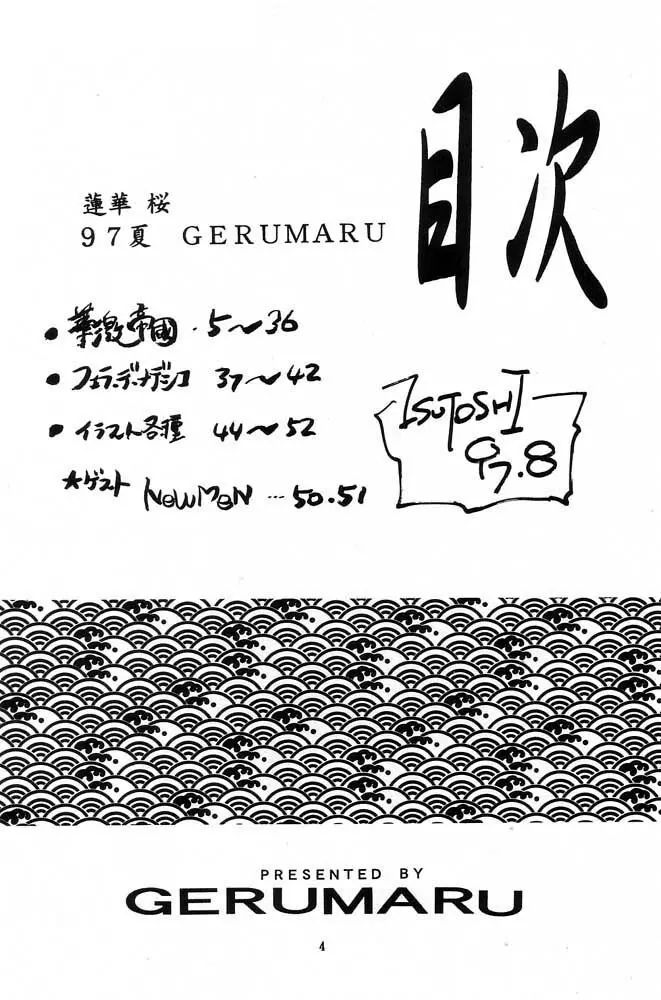 目次
蓮華 桜
97夏 GERUMARU
● 華激帝國・5〜36
● フェラ・デ・ナデシコ 37〜42
● イラスト各種 44〜52
★ゲスト NewMeN … 50.51
ISUTOSHI
97.8
PRESENTED BY
GERUMARU
4